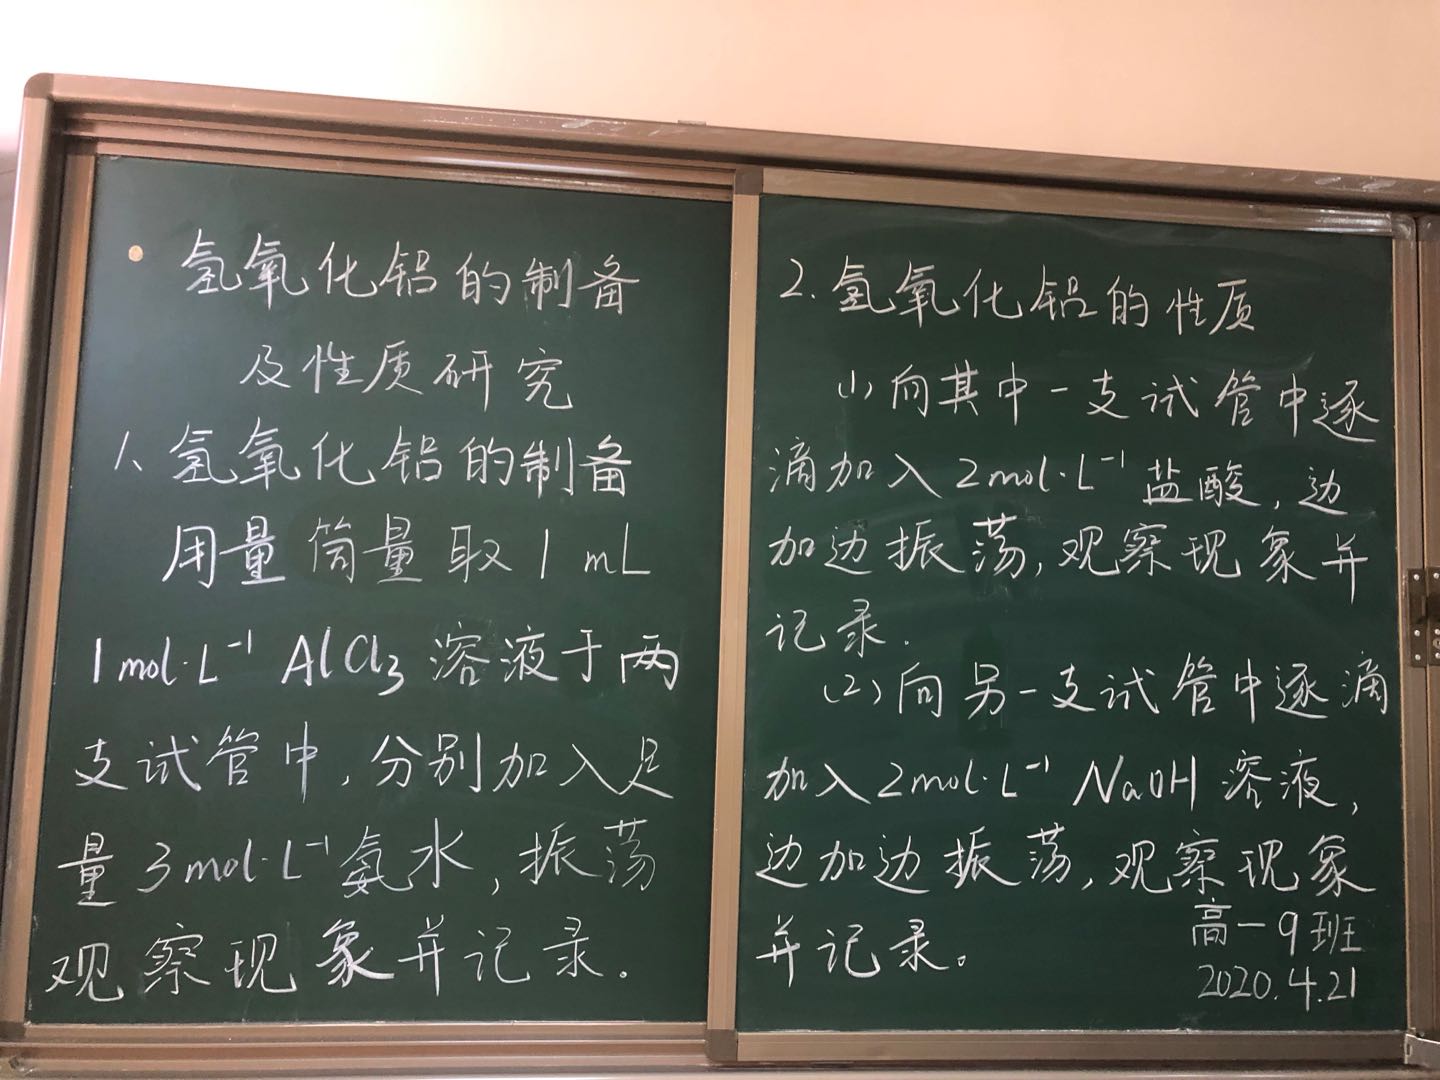 氢氧化铝的制备
及性质研究
1、氢氧化铝的制备
用量筒量取1mL
1mol·L⁻¹ AlCl₃ 溶液于两
支试管中,分别加入足
量3mol·L⁻¹氨水,振荡
观察现象并记录。
2.氢氧化铝的性质
(1)向其中一支试管中逐
滴加入2mol·L⁻¹盐酸,边
加边振荡,观察现象并
记录.
(2)向另一支试管中逐滴
加入2mol·L⁻¹ NaOH溶液,
边加边振荡,观察现象
并记录。
高一9班
2020.4.21